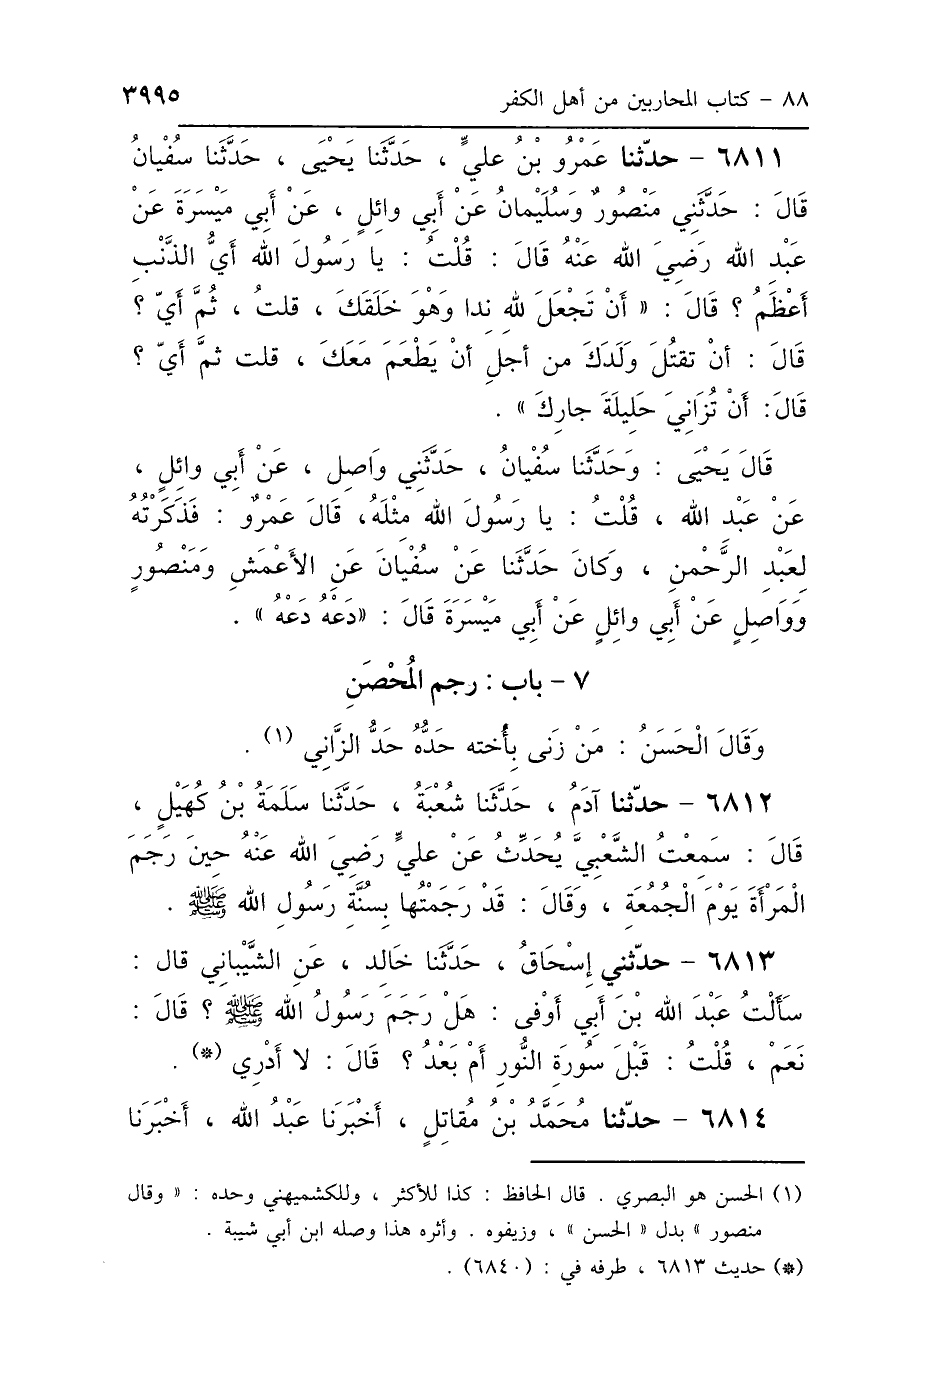 ٨٨ – كتاب المحاربين من أهل الكفر ٣٩٩٥
٦٨١١ – حدّثنا عَمْرُو بْنُ عليٍّ ، حَدَّثَنا يَحْيَى ، حَدَّثَنا سُفْيانُ
قَالَ : حَدَّثَنِي مَنْصُورٌ وَسُلَيْمانُ عَنْ أَبِي وائِلٍ ، عَنْ أَبِي مَيْسَرَةَ عَنْ
عَبْدِ الله رَضِيَ الله عَنْهُ قَالَ : قُلْتُ : يا رَسُولَ الله أَيُّ الذَّنْبِ
أَعْظَمُ ؟ قَالَ : « أَنْ تَجْعَلَ للهِ ندا وَهْوَ خَلَقَكَ ، قلتُ ، ثُمَّ أَيّ ؟
قَالَ : أنْ تقتُلَ وَلَدَكَ من أجلِ أنْ يَطْعَمَ مَعَكَ ، قلت ثمَّ أيّ ؟
قَالَ: أَنْ تُزَانِيَ حَلِيلَةَ جارِكَ » .
قَالَ يَحْيَى : وَحَدَّثَنا سُفْيانُ ، حَدَّثَنِي وَاصِل ، عَنْ أَبِي وائِلٍ ،
عَنْ عَبْدِ الله ، قُلْتُ : يا رَسُولَ الله مِثْلَهُ، قَالَ عَمْرٌو : فَذَكَرْتُهُ
لِعَبْدِ الرَّحْمنِ ، وَكانَ حَدَّثَنَا عَنْ سُفْيانَ عَنِ الأَعْمَشِ وَمَنْصُورٍ
وَوَاصِلٍ عَنْ أَبِي وائِلٍ عَنْ أَبِي مَيْسَرَةَ قَالَ : «دَعْهُ دَعْهُ » .
٧ – باب : رجم المُحْصَنِ
وَقَالَ الْحَسَنُ : مَنْ زَنَى بأُخته حَدُّهُ حَدُّ الزَّانِي (١) .
٦٨١٢ – حدّثنا آدَمُ ، حَدَّثَنا شُعْبَةُ ، حَدَّثَنا سَلَمَةُ بْنُ كُهَيْلٍ ،
قَالَ : سَمِعْتُ الشَّعْبِيَّ يُحَدِّثُ عَنْ عليٍّ رَضِيَ الله عَنْهُ حِينَ رَجَمَ
الْمَرْأَةَ يَوْمَ الْجُمُعَةِ ، وَقَالَ : قَدْ رَجَمْتُها بِسُنَّةِ رَسُولِ الله ﷺ .
٦٨١٣ – حدّثني إسْحَاقُ ، حَدَّثَنا خالِد ، عَنِ الشَّيْباني قال :
سَأَلْتُ عَبْدَ الله بْنَ أَبِي أَوْفى : هَلْ رَجَمَ رَسُولُ الله ﷺ ؟ قَالَ :
نَعَمْ ، قُلْتُ : قَبْلَ سُورَةِ النُّورِ أَمْ بَعْدُ ؟ قَالَ : لا أَدْرِي (*) .
٦٨١٤ – حدّثنا مُحَمَّدُ بْنُ مُقاتِلٍ ، أَخْبَرَنَا عَبْدُ الله ، أَخْبَرَنَا
(١) الحسن هو البصري . قال الحافظ : كذا للأكثر ، وللكشميهني وحده : « وقال
منصور » بدل « الحسن » ، وزيفوه . وأثره هذا وصله ابن أبي شيبة .
(*) حديث ٦٨١٣ ، طرفه في : (٦٨٤٠) .